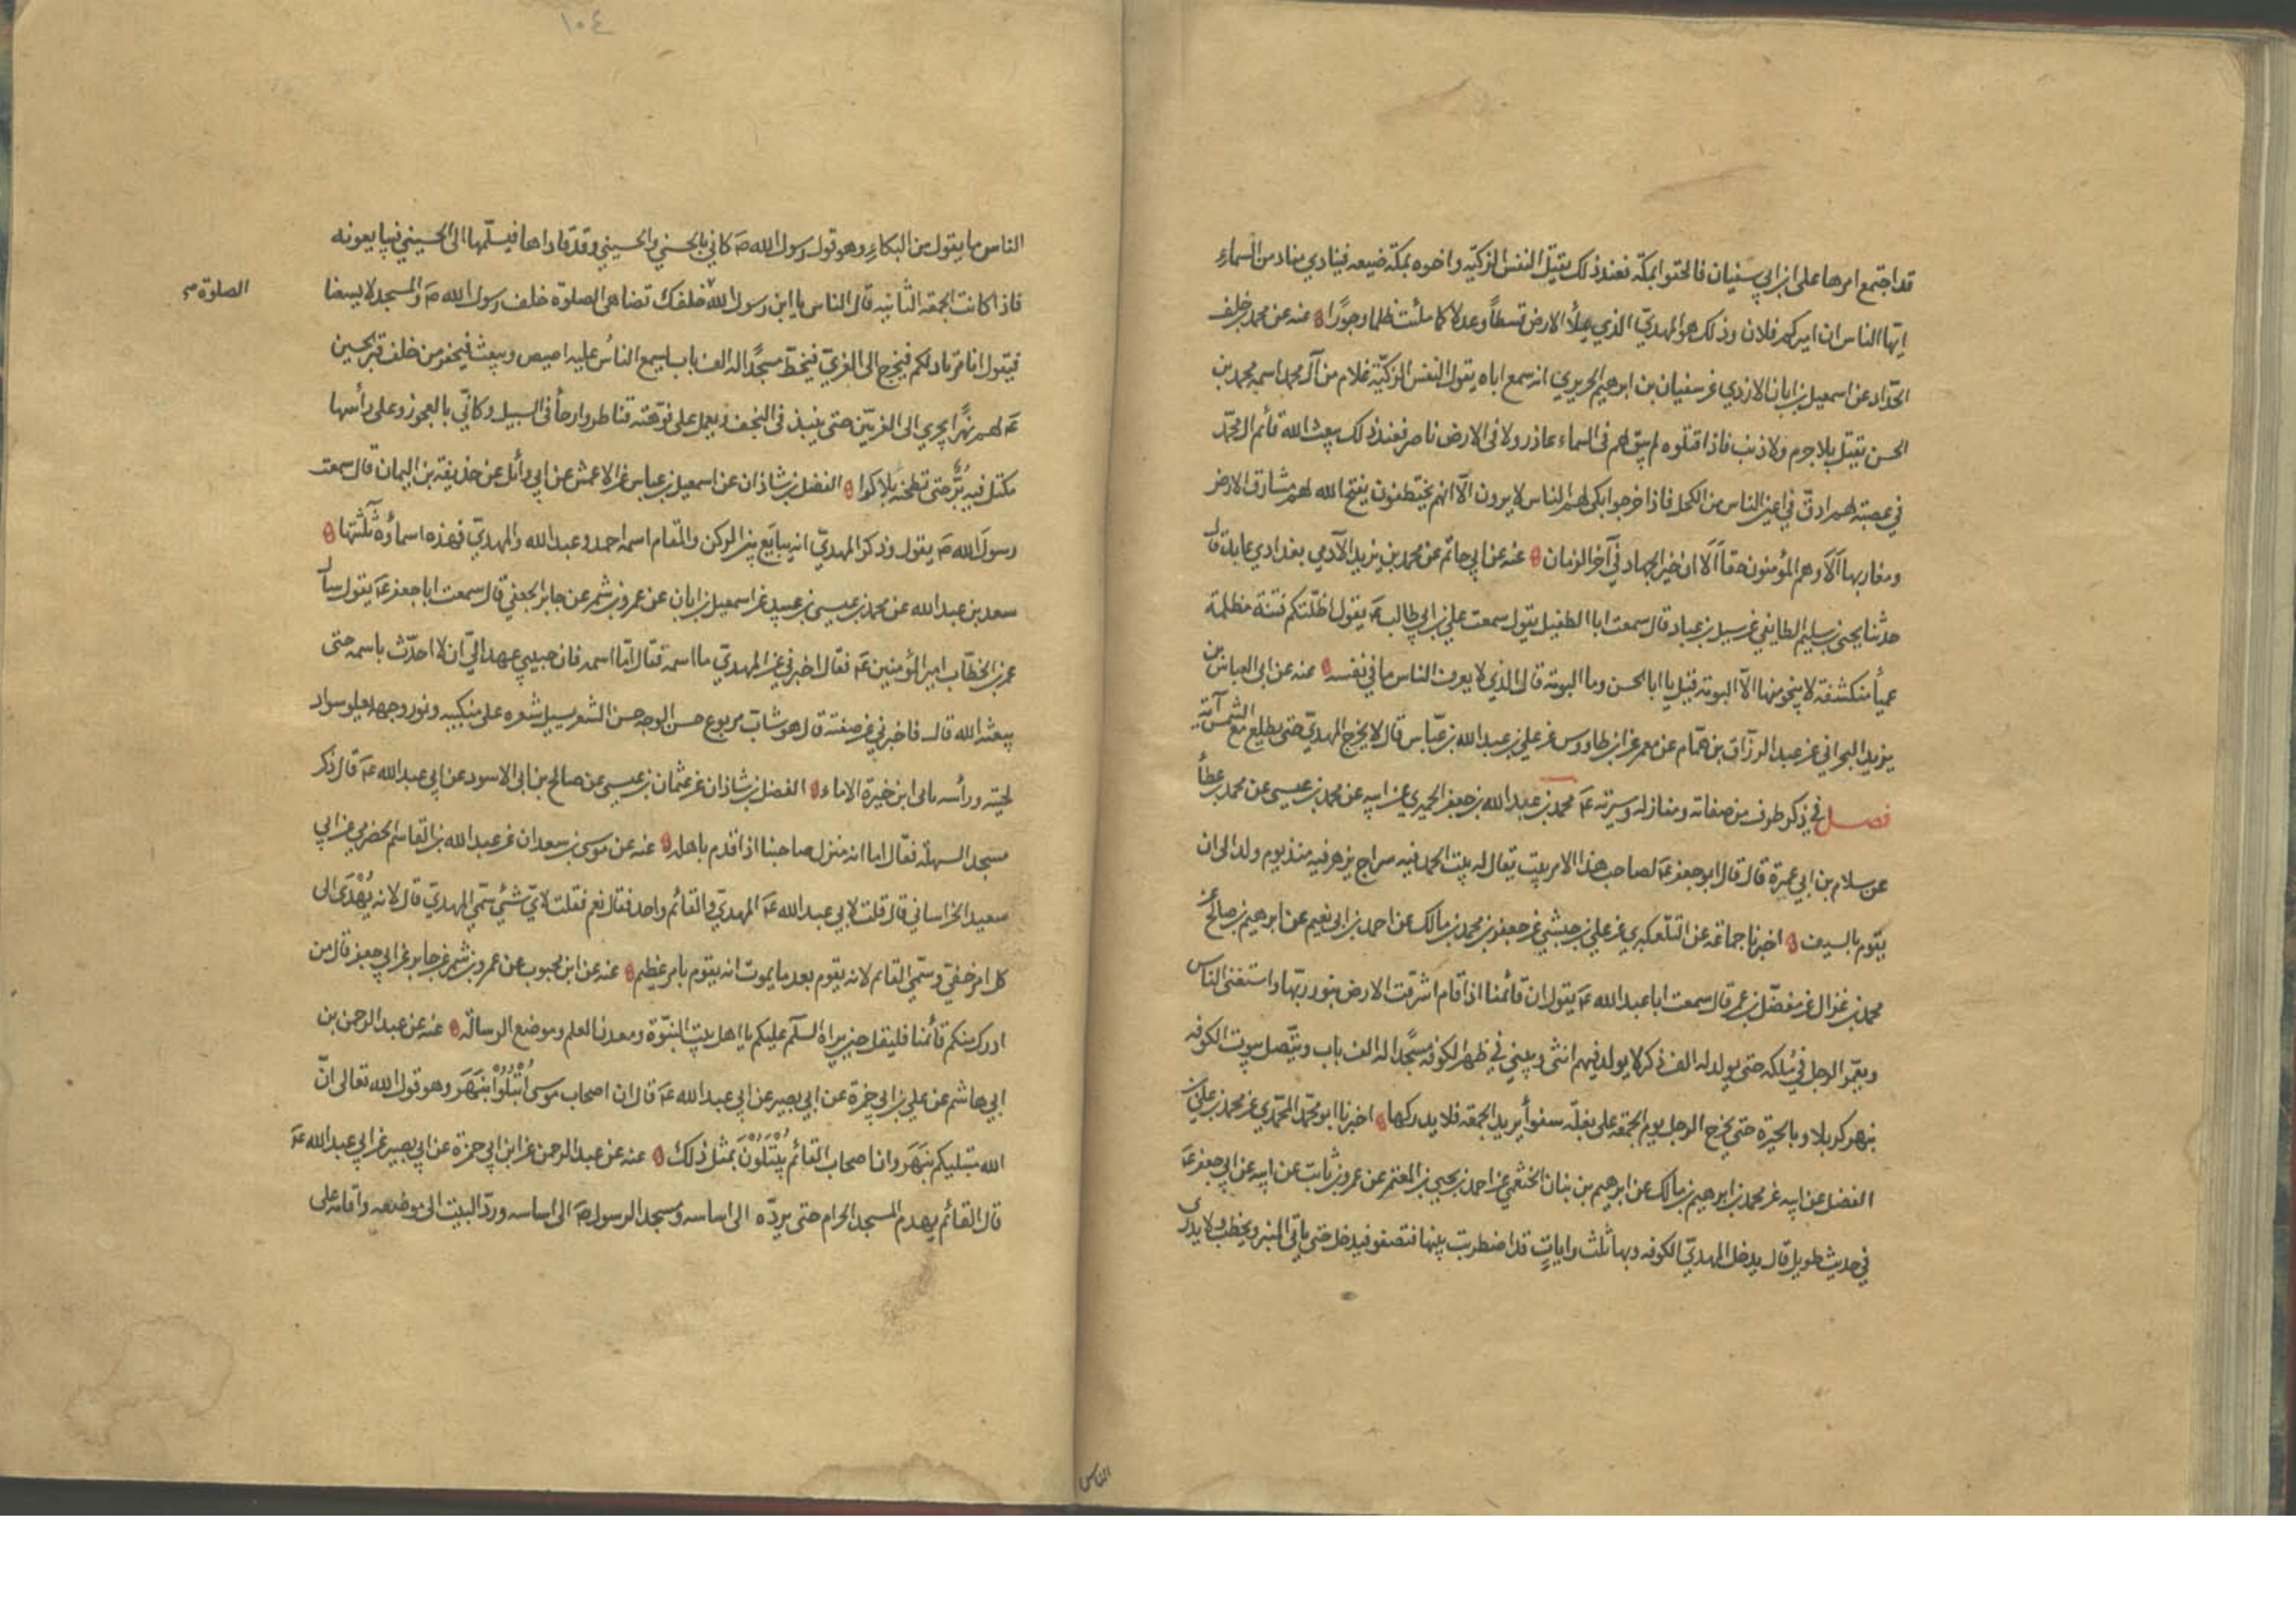 قد اجتمع امرها على ابن ابي سفيان فالحقوا بمكة فعند ذلك يقتل النفس الزكيه واخوه بمكة ضيعه فينادي مناد من السماء
ايها الناس ان اميركم فلان وذلك هو المهديّ الذي يملأ الارض قسطاً وعدلا كما ملئت ظلما وجوراً عنه عن محمد بن خلف
الحدّاد عن اسمعيل بن ابان الازدي عن سفيان بن ابرهيم الجريري انه سمع اباه يقول النفس الزكيّة غلام من آل محمد اسمه محمد بن
الحسن يقتل بلا جرم ولا ذنب فاذا قتلوه لم يبق لهم في السماء عاذر ولا في الارض ناصر فعند ذلك يبعث الله قائم ال محمّد
في عصبة لهم ادقّ في اعين الناس من الكحل فاذا خرجوا بكى لهم الناس لا يرون الّا انهم يختطفون يفتح الله لهم مشارق الارض
ومغاربها ألا وهم المؤمنون حقاً ألا ان خير الجهاد في آخر الزمان عنه عن ابي حاتم عن محمد بن يزيد الآدمي بغدادي عابد قال
حدثنا يحيى بن سليم الطايفي عن سيل بن عباد قال سمعت ابا الطفيل يقول سمعت علي بن ابي طالب ع يقول اظلّتكم فتنة مظلمة
عمياً منكشفة لا ينجو منها الّا النومة قيل يا ابا الحسن وما النومة قال الذي لا يعرف الناس ما في نفسه عنه عن ابي العباس بن
يزيد البحراني عن عبد الرزاق بن همّام عن معمر عن ابن طاووس عن علي بن عبد الله بن عبّاس قال لا يخرج المهديّ حتى يطلع مع الشمس آية
فصل في ذكر طرف من صفاته ومنازله وسيرته ع محمد بن عبد الله بن جعفر الحميري عن ابيه عن محمد بن عيسى عن محمد بن عطأ
عن سلام بن ابي عمرة قال قال ابو جعفر ع لصاحب هذا الامر بيت يقال له بيت الحمد فيه سراج يزهر فيه منذ يوم ولد الى ان
يقوم بالسيف اخبرنا جماعة عن التلعكبري عن علي بن حبشي عن جعفر بن محمد بن مالك عن احمد بن ابي نعيم عن ابرهيم بن صالح عن
محمد بن غزال عن مفضّل بن عمر قال سمعت ابا عبد الله ع يقول ان قائمنا اذا قام اشرقت الارض بنور ربّها واستغنى الناس
ويعمّر الرجل في ملكه حتى يولد له الف ذكر لا يولد فيهم انثى ويبني في ظهر الكوفه مسجداً له الف باب ويتّصل بيوت الكوفه
بنهر كربلا وبالحيرة حتى يخرج الرجل يوم الجمعة على بغلة سفوأ يريد الجمعه فلا يدركها اخبرنا ابو محمّد المحمّدي عن محمد بن علي بن
الفضل عن ابيه عن محمد بن ابرهيم بن مالك عن ابرهيم بن بنان الخثعمي عن احمد بن يحيى بن المعتمر عن عمرو بن ثابت عن ابيه عن ابي جعفر ع
في حديث طويل قال يدخل المهديّ الكوفه وبها ثلث رايات قد اضطربت بينها فتصفو فيدخل حتى ياتي المنبر ويخطب ولا يدري
الناس
١٠٤
الناس ما يقول من البكاء وهو قول رسول الله ص كاني بالحسني والحسيني وقد قاداها فيسلّمها الى الحسيني فيبايعونه
فاذا كانت الجمعة الثانيه قال الناس يا ابن رسول الله خلفك تضاهي الصلوة خلف رسول الله ص والمسجد لا يسعنا
الصلوة
فيقول انا مرتاد لكم فيخرج الى الغريّ فيخطّ مسجداً له الف باب يسع الناس عليه اصيص ويبعث فيحفر من خلف قبر الحسين
ع لهم نهراً يجري الى الغريّين حتى ينبذ في النجف ويعمل على فوهته قناطر وارحأ في السبيل وكانّي بالعجوز وعلى رأسها
مكتل فيه بُرٌّ حتى تطحنه بلا كرا الفضل بن شاذان عن اسمعيل بن عياس عن الاعمش عن ابي وائل عن حذيفة بن اليمان قال سمعت
رسول الله ص يقول وذكر المهديّ انه يبايَع بين الركن والمقام اسمه احمد وعبد الله والمهديّ فهذه اسماؤه ثلثتها
سعد بن عبد الله عن محمد بن عيسى بن عبيد عن اسمعيل بن ابان عن عمرو بن شمر عن جابر الجعفي قال سمعت ابا جعفر ع يقول سأل
عمر بن الخطّاب امير المؤمنين ع فقال اخبرني عن المهديّ ما اسمه فقال امّا اسمه فان حبيبي عهد اليّ ان لا احدّث باسمه حتى
يبعثه الله قال فاخبرني عن صفته قال هو شابّ مربوع حسن الوجه حسن الشعر يسيل شعره على منكبيه ونور وجهه يعلو سواد
لحيته ورأسه بابي ابن خيرة الاماء الفضل بن شاذان عن عثمان بن عيسى عن صالح بن ابي الاسود عن ابي عبد الله ع قال ذكر
مسجد السهلة فقال اما انه منزل صاحبنا اذا قدم باهله عنه عن موسى بن سعدان عن عبد الله بن القاسم الحضرمي عن ابي
سعيد الخراساني قال قلت لابي عبد الله ع المهديّ والقائم واحد فقال نعم فقلت لايّ شئ سمّي المهديّ قال لانه يُهْدَى الى
كل امر خفيّ وسمّي القائم لانه يقوم بعد ما يموت انه يقوم بامر عظيم عنه عن ابن محبوب عن عمرو بن شمر عن جابر عن ابي جعفر قال من
ادرك منكم قائمنا فليقل حين يراه السلم عليكم يا اهل بيت النبوّة ومعدن العلم وموضع الرسالة عنه عن عبد الرحمن بن
ابي هاشم عن علي بن ابي حمزة عن ابي بصير عن ابي عبد الله ع قال ان اصحاب موسى ابْتُلُوْا بنَهَر وهو قول الله تعالى انّ
الله مبتليكم بنَهَر وان اصحاب القائم يُبْتَلَوْنَ بمثل ذلك عنه عن عبد الرحمن عن ابن ابي حمزة عن ابي بصير عن ابي عبد الله ع
قال القائم يهدم المسجد الحرام حتى يردّه الى اساسه ومسجد الرسول ص الى اساسه وردّ البيت الى موضعه واقامه على